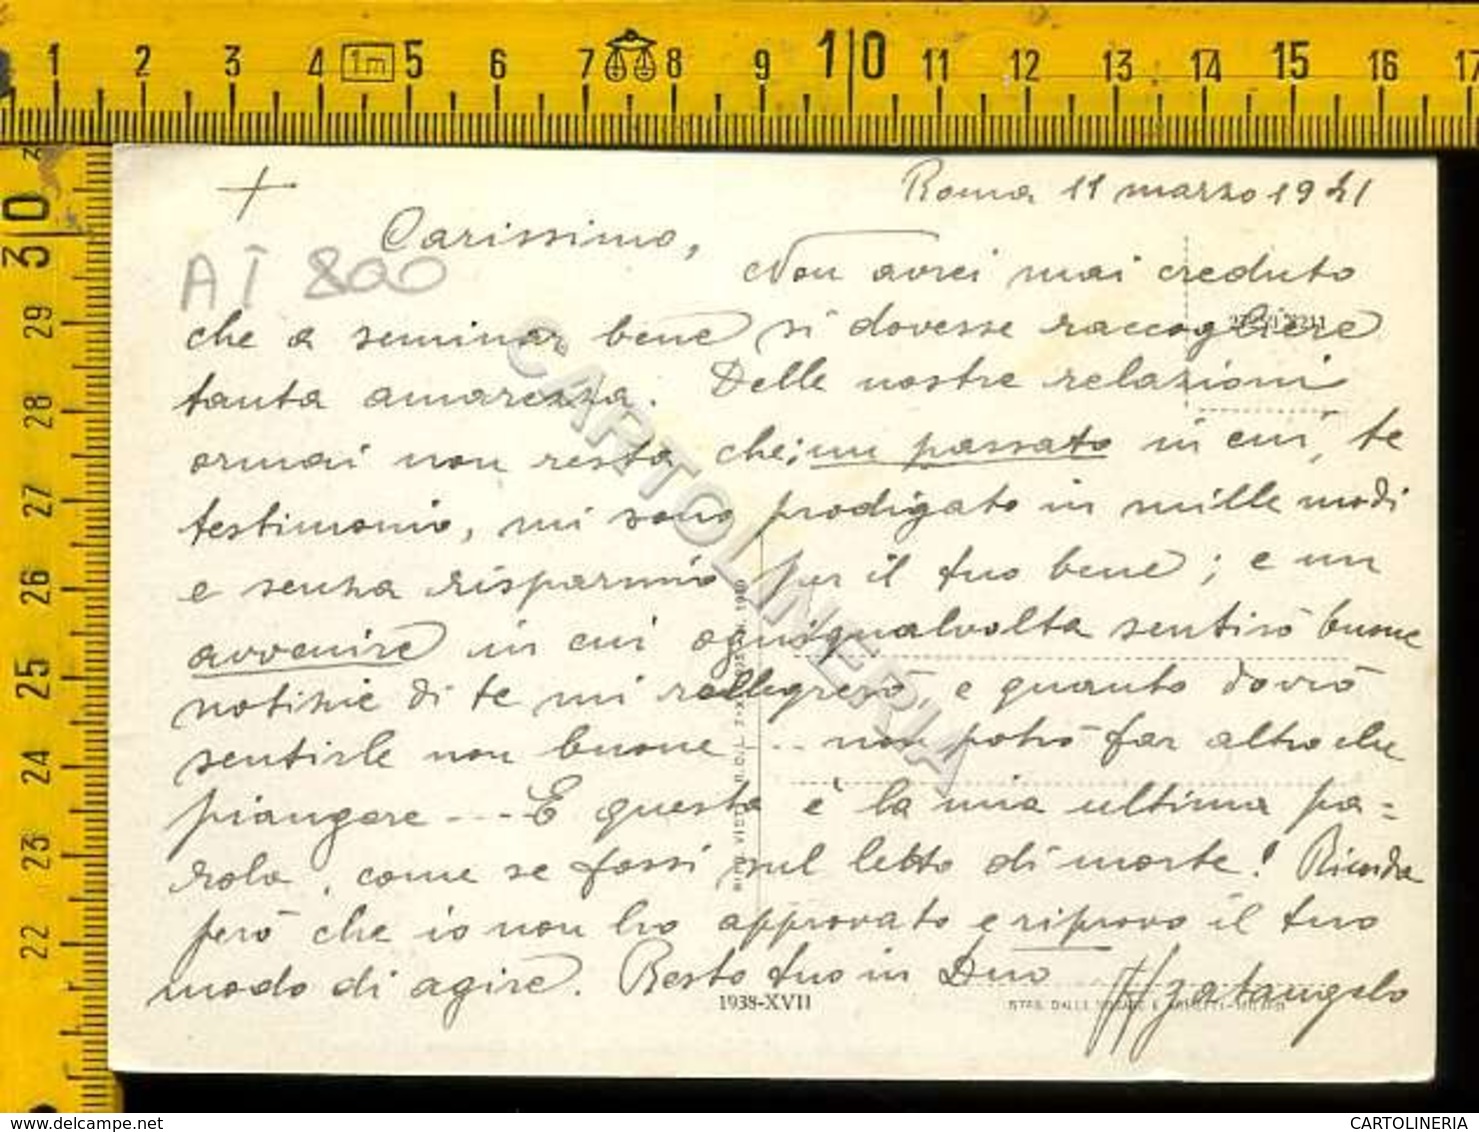 1 2 3 4 1m 5 6 7 8 9 10 11 12 13 14 15 16 17
30 29 28 27 26 25 24 23 22
Roma 11 marzo 1941
Carissimo,
AI 800
Non avrei mai creduto
che a seminar bene si dovesse raccogliere
tanta amarezza. Delle nostre relazioni
ormai non resta che: un passato in cui, te
testimonio, mi sono prodigato in mille modi
e senza risparmio per il tuo bene; e un
avvenire in cui ogniqualvolta sentirò buone
notizie di te mi rallegrerò, e quanto dovrò
sentirle non buone - .. non potrò far altro che
piangere - - - E questa è la mia ultima pa=
rola, come se fossi sul letto di morte! Ricorda
però che io non ho approvato e riprovo il tuo
modo di agire. Resto tuo in Dno
1938-XVII
CARTOLINERIA
CARTOLINERIA
delcampe.net